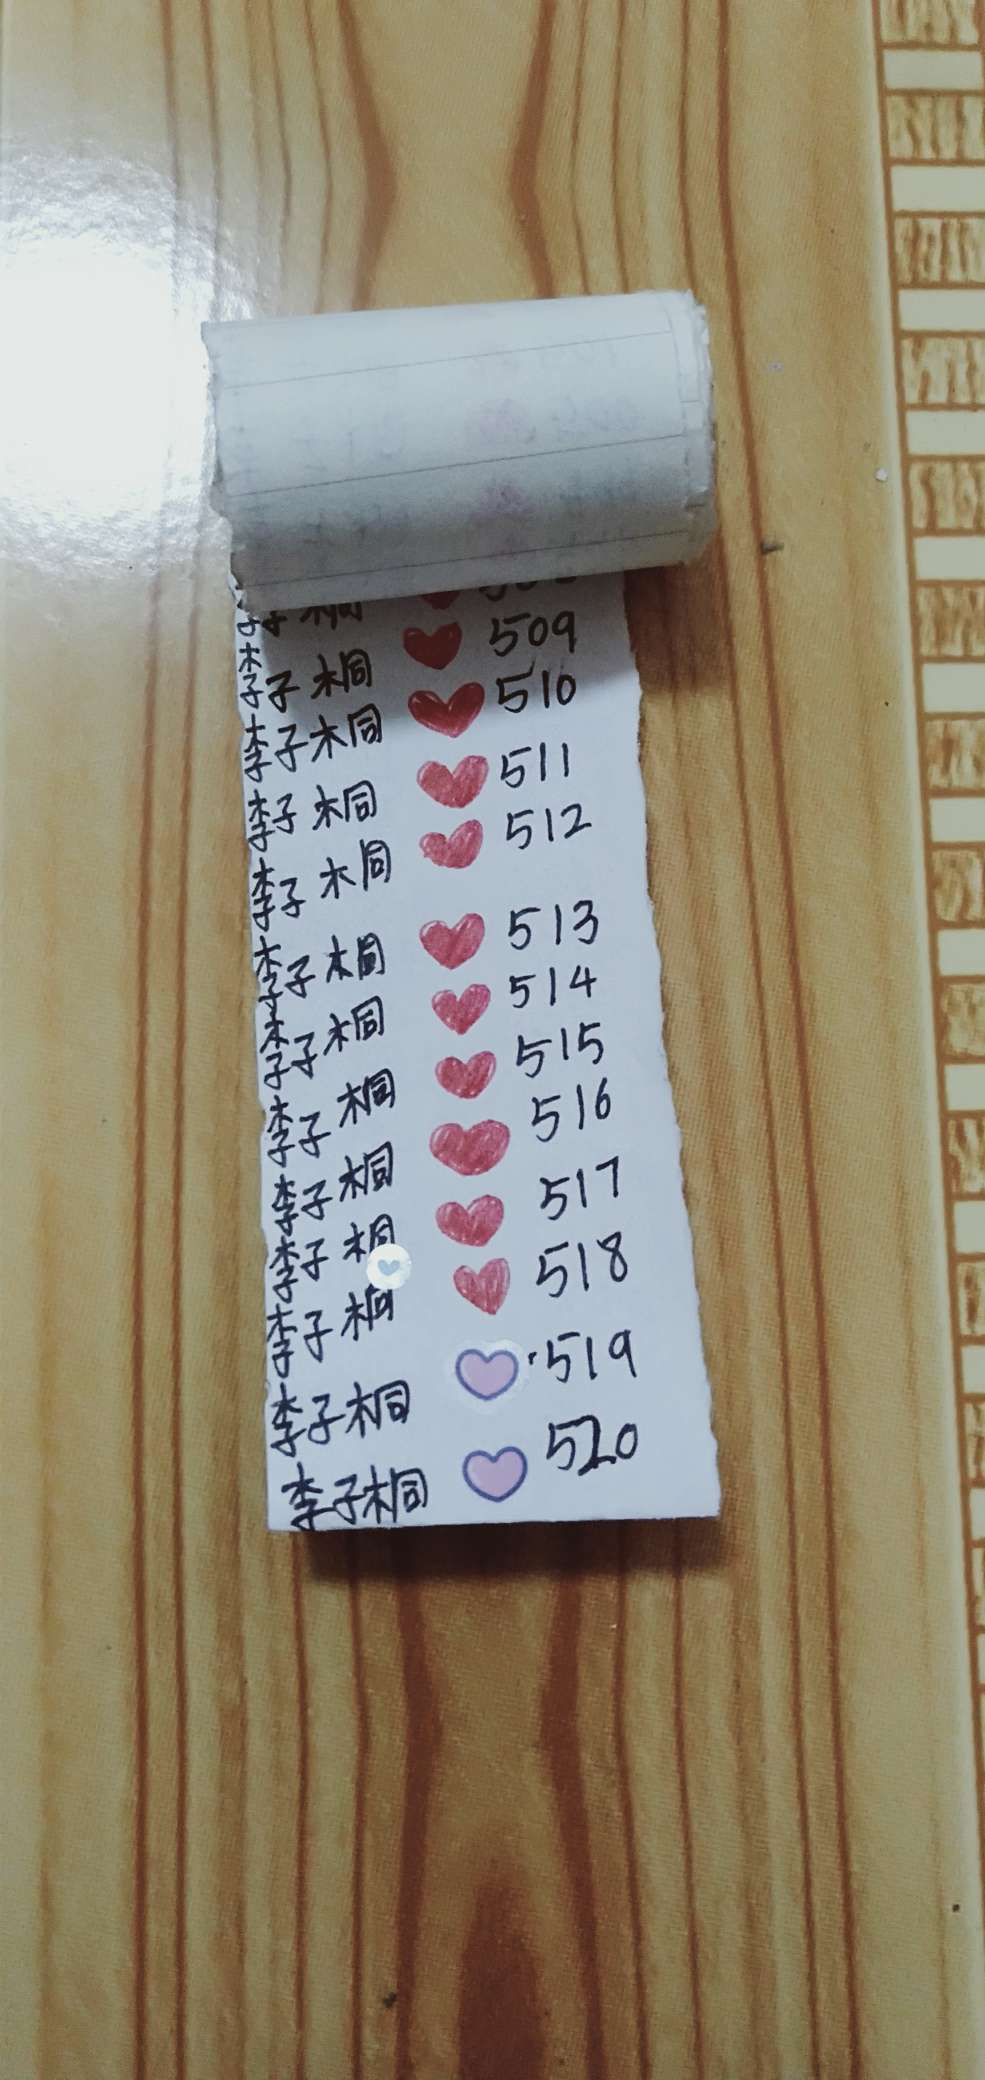 李子桐 509
李子桐 510
李子桐 511
李子桐 512
李子桐 513
李子桐 514
李子桐 515
李子桐 516
李子桐 517
李子桐 518
李子桐 519
李子桐 520